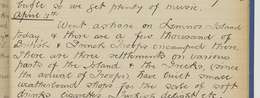 bugle so we get plenty of music.
April 5th
Went ashore on Lemnos Island
today & there are a few thousand of
British & French Troops encamped there.
There are three settlements on various
parts of the Island & the Greeks, since
the advent of Troops have built small
weatherboard shops for the sale of soft
drinks cigarettes